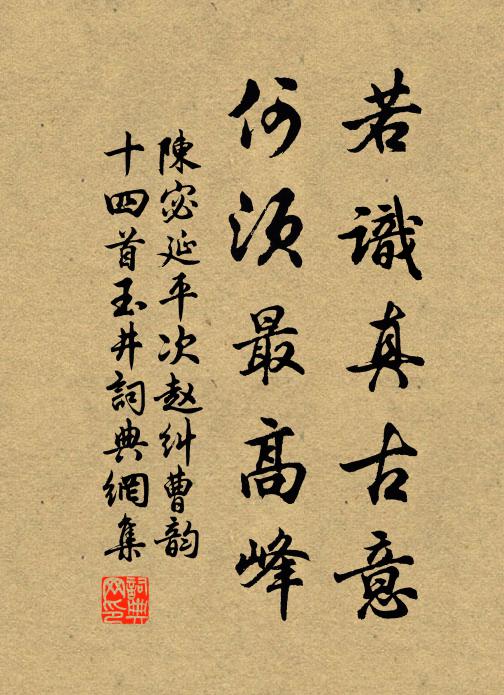 若識真古意
何須最高峰
陳宓延平次赵糾曹韵
十四首玉井詞典網集
詞典
网印